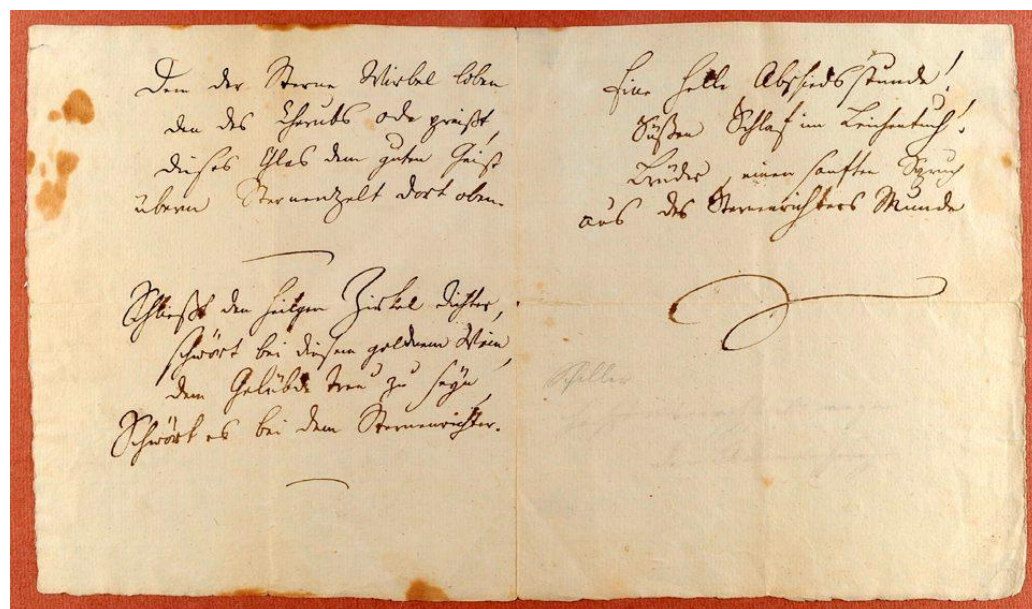 Dem der Sterne Wirbel loben
den des Cherubs Ode preißt,
dieses Glas dem guten Geist
überm Sternenzelt dort oben.
Schließt den heilgen Zirkel dichter,
schwört bei diesem goldnem Wein,
dem Gelübde treu zu seyn,
Schwört es bei dem Sternenrichter.
Eine helle Abschiedsstunde!
Süßen Schlaf im Leichentuch!
Brüder, einen sanften Spruch
aus des Sternenrichters Munde
Schiller